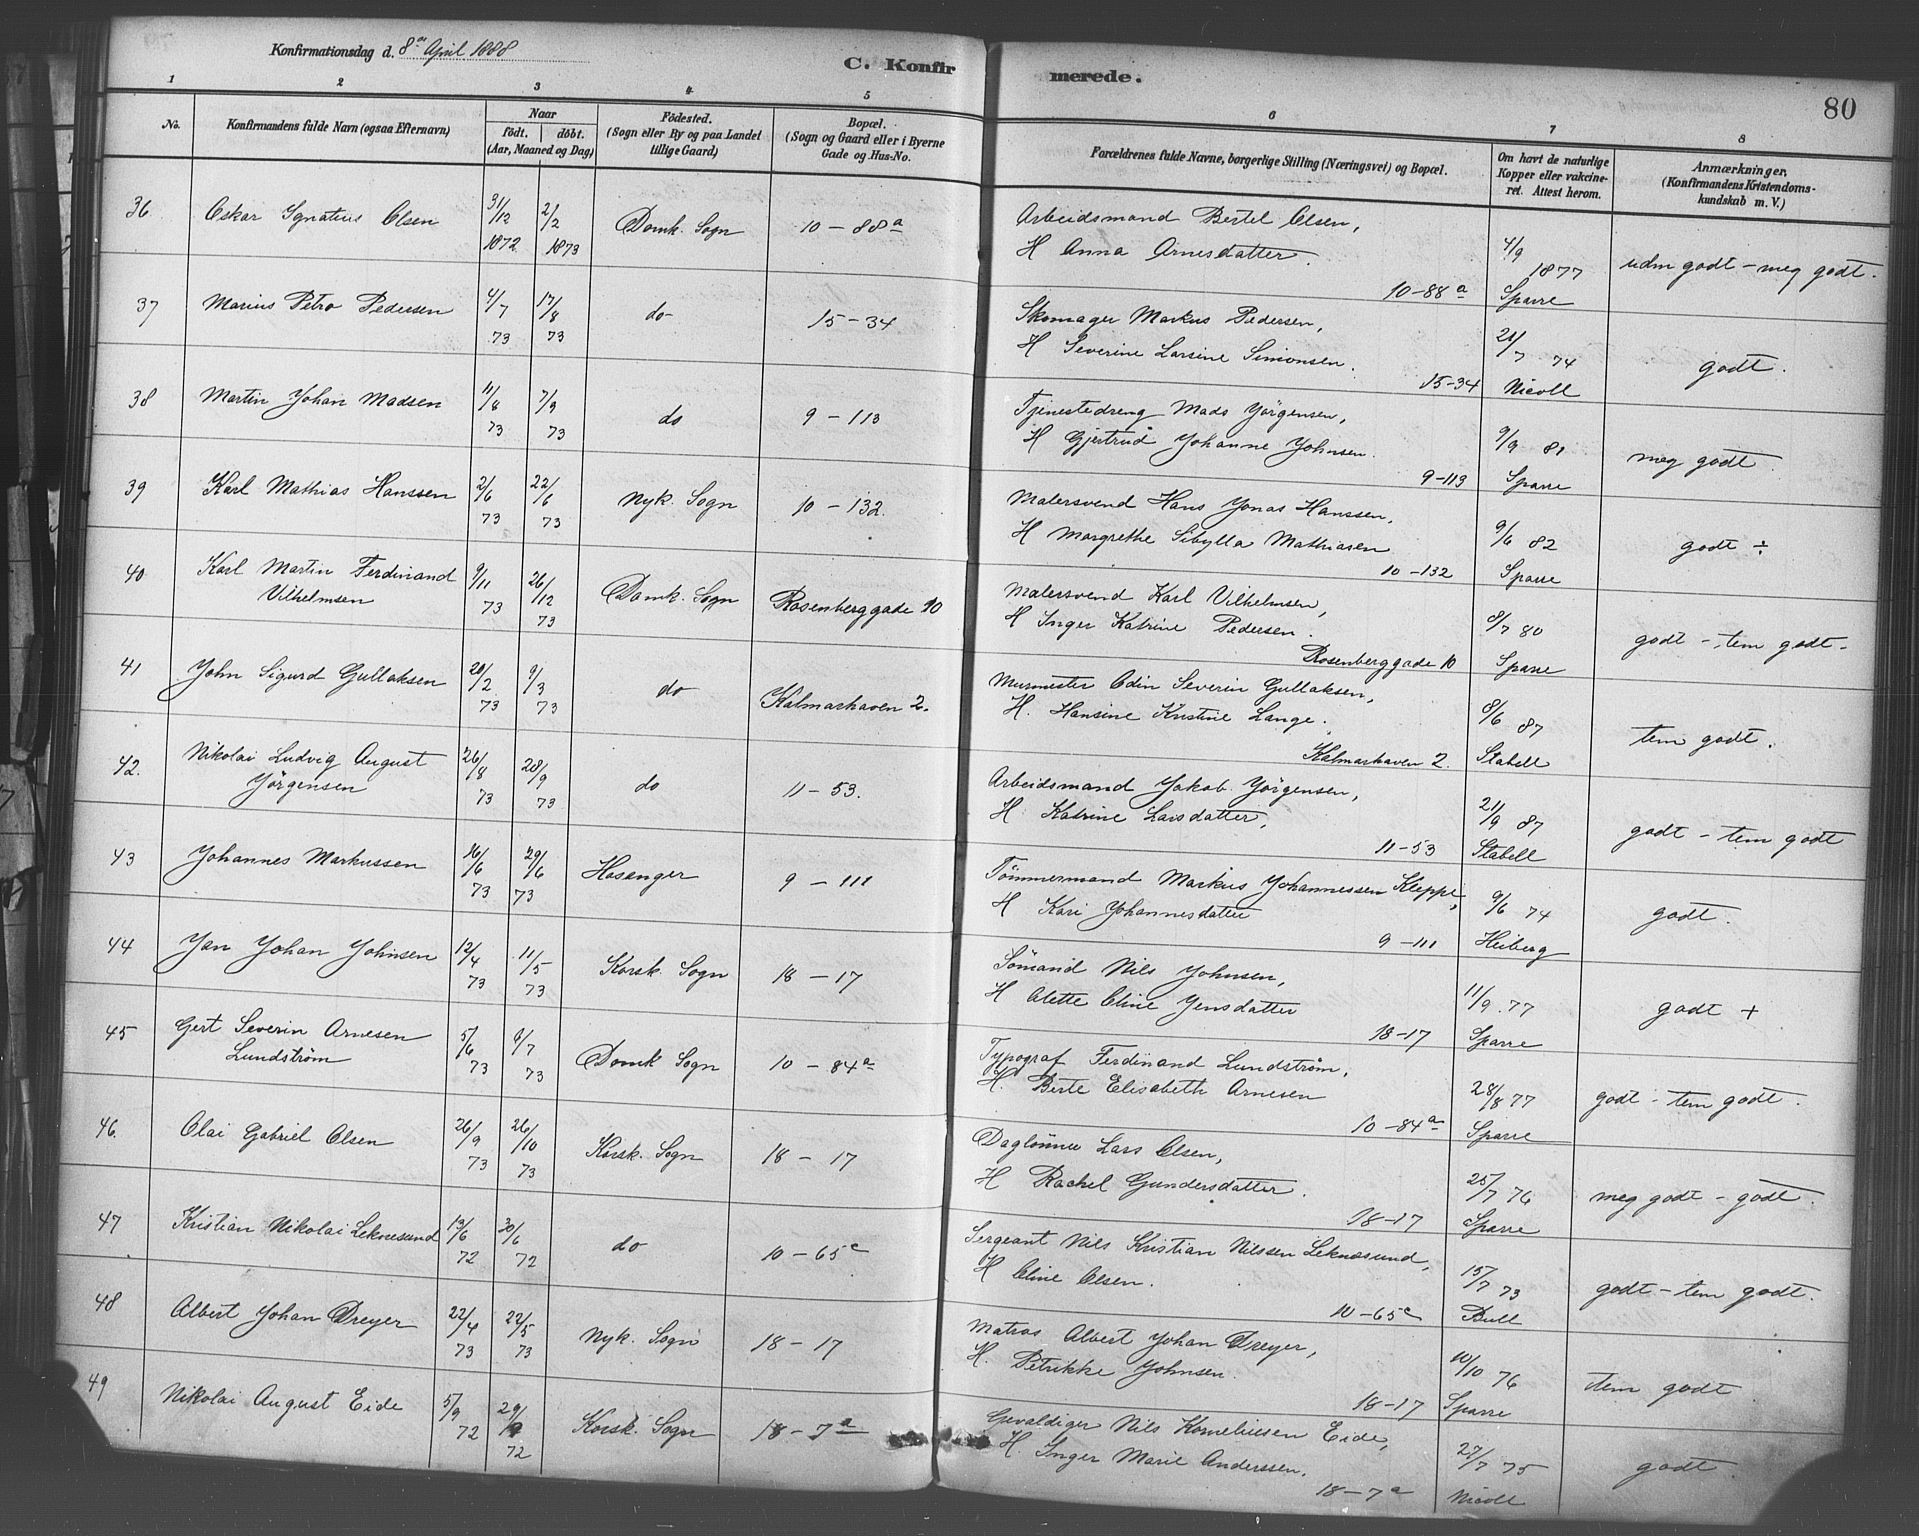 Konfirmationsdag d. 8de April 1888
C. Konfirmerede.
80
1 2 3 4 5 6 7 8
No.
Konfirmandens fulde Navn (ogsaa Efternavn)
Naar
født. døbt.
(Aar, Maaned og Dag)
Fødested.
(Sogn eller By og paa Landet
tillige Gaard)
Bopæl.
(Sogn og Gaard eller i Byerne
Gade og Hus-No.
Forældrenes fulde Navne, borgerlige Stilling (Næringsvei) og Bopæl.
Om havt de naturlige
Kopper eller vakcine-
ret. Attest herom.
Anmærkninger.
(Konfirmandens Kristendoms-
kundskab m. V.)
36. Oskar Ignatius Olsen 31/12 1872 2/2 1873 Domk. Sogn 10 – 88a
Arbeidsmand Bertel Olsen,
H Anna Arnesdatter.
10-88a
4/9 1877 Sparre
udm godt – meg godt.
37 Marius Petro Pedersen 4/7 73 17/8 73 do 15 – 34
Skomager Markus Pedersen,
H Severine Larsine Simonsen.
15-34
21/7 74 Nicoll
godt.
38 Martin Johan Madsen 11/8 73 7/9 73 do 9 – 113
Tjenestedreng Mads Jørgensen,
H Gjertrud Johanne Johnsen.
9-113
9/9 81 Sparre
meg godt.
39 Karl Mathias Hanssen 2/6 73 22/6 73 Nyk. Sogn 10 – 132.
Malersvend Hans Jonas Hanssen,
H Margrethe Sibylla Mathiasen
10-132
9/6 82 Sparre
godt ÷
40 Karl Martin Ferdinand
Vilhelmsen 9/11 73 26/12 73 Domk. Sogn Rosenberggade 10
Malersvend Karl Vilhelmsen,
H Inger Katrine Pedersen.
Rosenberggade 10
8/7 80 Sparre
godt – tem godt.
41 John Sigurd Gullaksen 20/2 73 9/3 73 do Kalmarhaven 2.
Murmester Odin Severin Gullaksen,
H. Hansine Kristine Lange.
Kalmarhaven 2.
8/6 87 Stabell
tem godt.
42. Nikolai Ludvig August
Jørgensen 26/8 73 28/9 73 do 11 – 53.
Arbeidsmand Jakob Jørgensen,
H. Katrine Larsdatter,
11-53
21/9 87 Stabell
godt – tem godt
43 Johannes Markussen 16/6 73 29/6 73 Hosanger 9 – 111
Tømmermand Markus Johannessen Kleppe,
H Kari Johannesdatter
9-111
9/6 74 Heiberg
godt.
44 Jan Johan Johnsen 12/4 73 11/5 73 Korsk. Sogn 18 – 17
Sømand Nils Johnsen,
H Alette Oline Jensdatter
18-17
11/9 77 Sparre
godt +
45 Gert Severin Arnesen
Lundstrøm 5/6 73 6/7 73 Domk Sogn 10 – 84a
Typograf Ferdinand Lundstrøm,
H. Berte Elisabeth Arnesen
10-84a
28/8 77 Sparre
godt – tem godt.
46. Olai Gabriel Olsen 26/9 73 26/10 73 Korsk. Sogn 18 – 17
Daglønner Lars Olsen,
H Rachel Gundersdatter.
18-17
25/7 76 Sparre
meg godt – godt.
47 Kristian Nikolai Leknesund 13/6 72 30/6 72 do 10 – 65c
Sergeant Nils Kristian Nilssen Leknesund,
H Oline Olsen.
10-65c
15/7 73 Bull
godt – tem godt.
48 Albert Johan Dreyer 22/4 73 22/5 73 Nyk. Sogn 18 – 17
Matros Albert Johan Dreyer,
H. Petrikke Johnsen.
18-17
10/10 76 Sparre
tem godt
49 Nikolai August Eide 5/9 72 29/9 72 Korsk. Sogn 18 – 7a
Gevaldiger Nils Korneliusen Eide,
H. Inger Marie Anderssen.
18-7a
27/7 75 Nicoll
godt